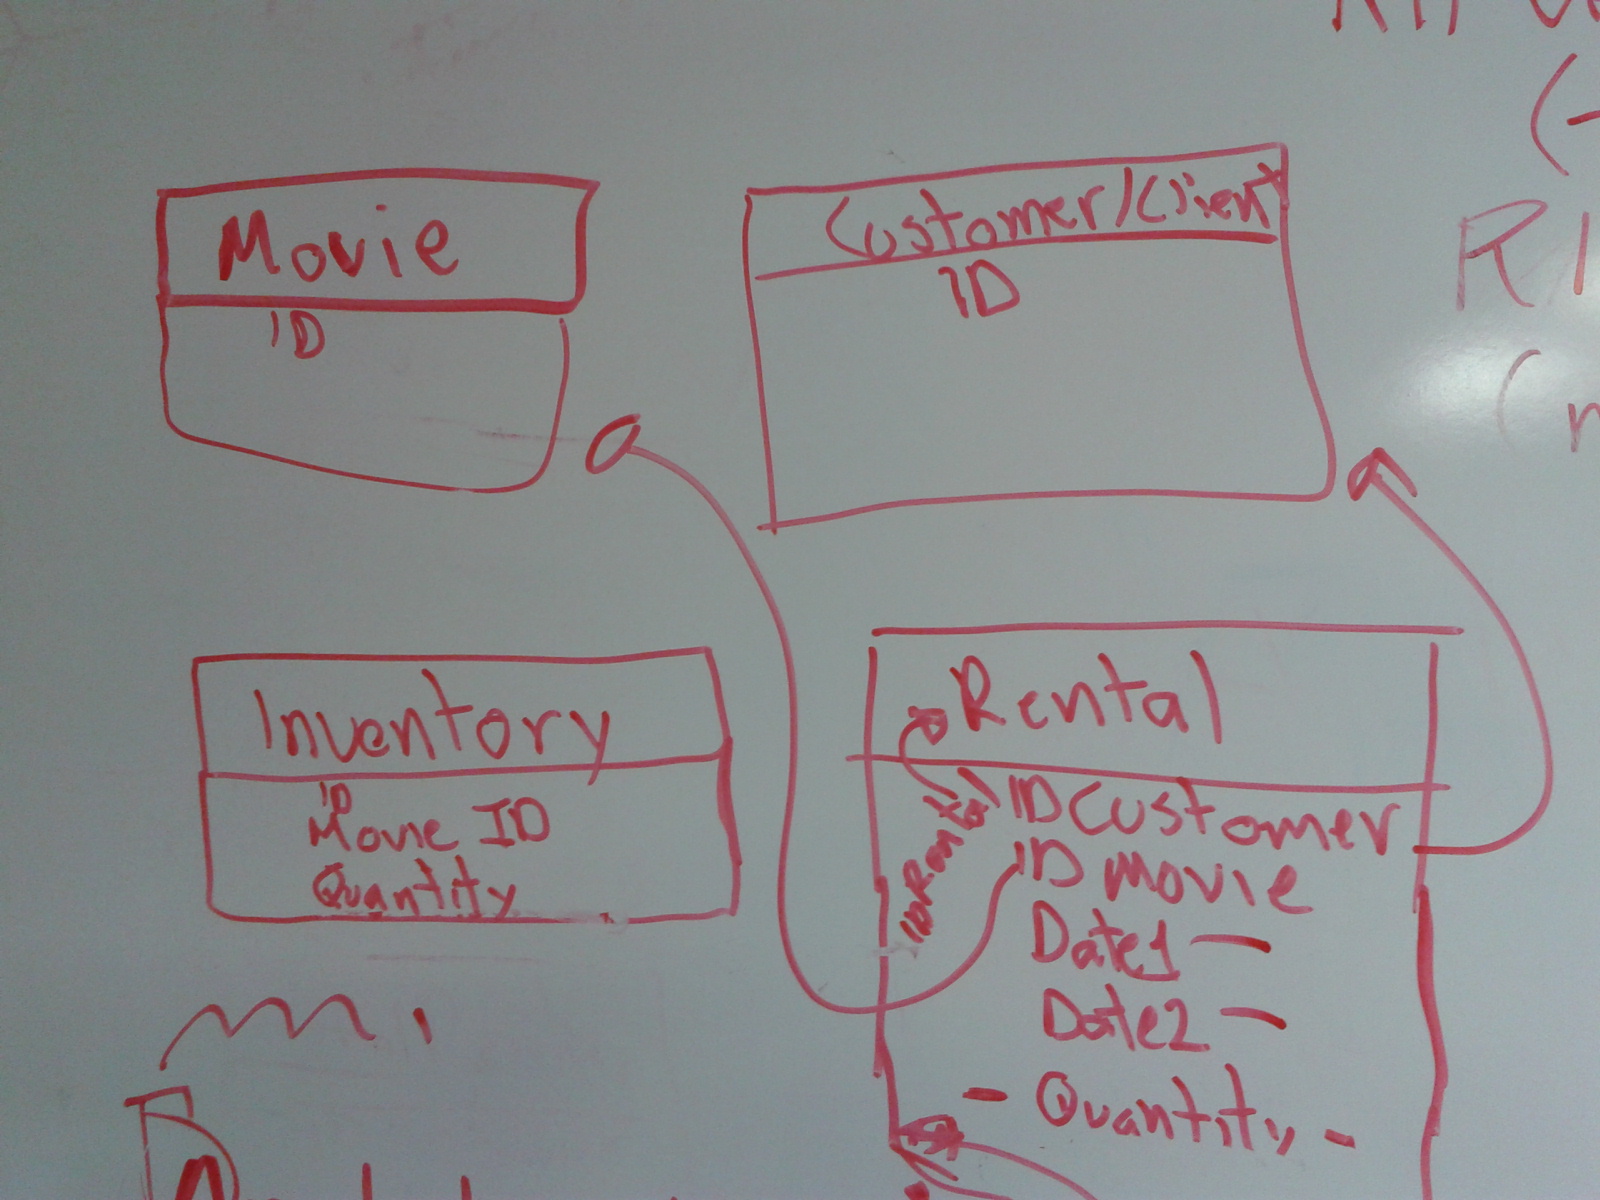 Movie
ID
Customer/Client
ID
Inventory
ID
Movie ID
Quantity
Rental
IDRental
IDCustomer
ID Movie
Date1 —
Date2 —
- Quantity -